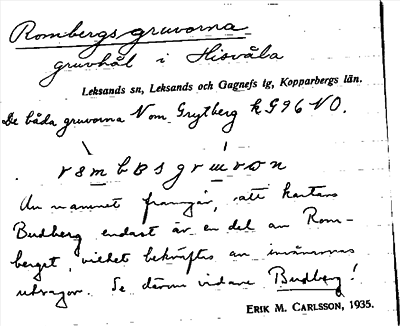 Rombergsgruvorna
gruvhål i Hisvåla
Leksands sn, Leksands och Gagnefs tg, Kopparbergs län.
De båda gruvorna V om Grytberg k G 96 NO.
Au namnet framgår, att kartans
Budberg endast är en del av Rom-
berget, vilket bekräftas av invånarnas
utsagor. Se denna vidare Budberg!
ERIK M. CARLSSON, 1935.